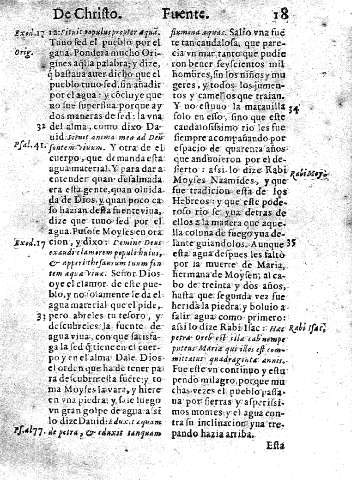 De Christo.
Fuente.
18
Exod.17
Orig.
Psal.41.
Exod.17
Psal.77.
32
33
ia: Sitiuit populus propter aquã.
Tuuo sed el pueblo por el
gana. Pondera mucho Ori-
gines aq̃lla palabra; y dize,
q̃ bastaua auer dicho que el
pueblo tuuo sed, sin añadir
por el agua: y cõcluye q̃ aun
no fue superflua, porque ay
dos maneras de sed: la vna
del alma, como dixo Da-
uid. Sitiuit anima mea ad Deũ
fontem viuum. Y otra de el
cuerpo, que demanda esta
agua material. Y para dar a
entender quan desalmada
era esta gente, quan oluida-
da de Dios, y quan poco ca-
so hazian desta fuente viua,
dize que tuuo sed por el
agua. Pusose Moysen en ora
cion, y dixo: Domine Deus
exaudi clamorem populi huius,
& aperi thesaurum tuum fon
tem aquæ viuæ. Señor Dios
oye el clamor de este pue-
blo, y no solamente le da el
agua material que el pide,
pero abreles tu tesoro, y
descubreles la fuente de
agua viua, con que satisfa-
ga la sed q̃ tienen en el cuer
po y en el alma. Dale Dios
el orden que ha de tener pa
ra descubrir esta fuẽte: y to
ma Moyses la vara, y hiere
en vna piedra: y sale luego
vn gran golpe de agua: assi
lo dize Dauid: Eduxit aquam
de petra, & eduxit tanquam
flumina aquas. Salio vna fuẽ
te tan caudalosa, que pare-
cia vn mar, tanto que pudie
ron beuer seyscientos mil
hombres, sin los niños y mu
geres, y todos los jumen-
tos y camellos que traian.
Y no estuuo la marauilla
solo en esso, sino que este
caudalosissimo rio les fue
siempre acompañando por
espacio de quarenta años
que anduuieron por el de-
sierto: assi lo dize Rabi
Moyses Naamides, y que
fue tradicion esta de los
Hebreos: y que este pode-
roso rio se yua detras de
ellos a la manera que aque-
lla colona de fuego yua de-
lante guiandolos. Aunque
esta agua despues les faltò
por la muerte de Maria,
hermana de Moysen, al ca-
bo de treinta y dos años,
hasta que segunda vez fue
herida la piedra, y boluio a
salir agua como primero:
assi lo dize Rabi Isac: Hæc
petra Oreb est illa ex qua
puteus Mariæ qui illos est com-
mittatur quadraginta annis.
Fue este vn continuo y estu
pendo milagro, porque mu
chas vezes el pueblo passa-
ua por sierras y asperissi-
mos montes: y el agua cont
ra su inclinacion yua tre-
pando hazia arriba.
Esta
34
Rabi Moys.
35
Rabi Isac.